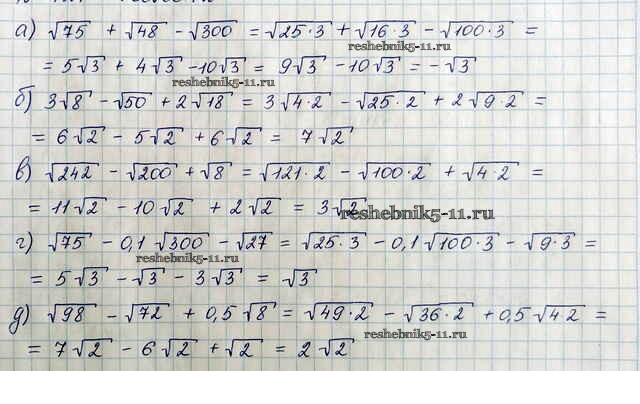 а) √75 + √48 - √300 = √25·3 + √16·3 - √100·3 =
reshebnik5-11.ru
= 5√3 + 4√3 - 10√3 = 9√3 - 10√3 = -√3
reshebnik5-11.ru
б) 3√8 - √50 + 2√18 = 3√4·2 - √25·2 + 2√9·2 =
= 6√2 - 5√2 + 6√2 = 7√2
в) √242 - √200 + √8 = √121·2 - √100·2 + √4·2 =
= 11√2 - 10√2 + 2√2 = 3√2
reshebnik5-11.ru
г) √75 - 0,1√300 - √27 = √25·3 - 0,1√100·3 - √9·3 =
reshebnik5-11.ru
= 5√3 - √3 - 3√3 = √3
д) √98 - √72 + 0,5√8 = √49·2 - √36·2 + 0,5√4·2 =
reshebnik5-11.ru
= 7√2 - 6√2 + √2 = 2√2